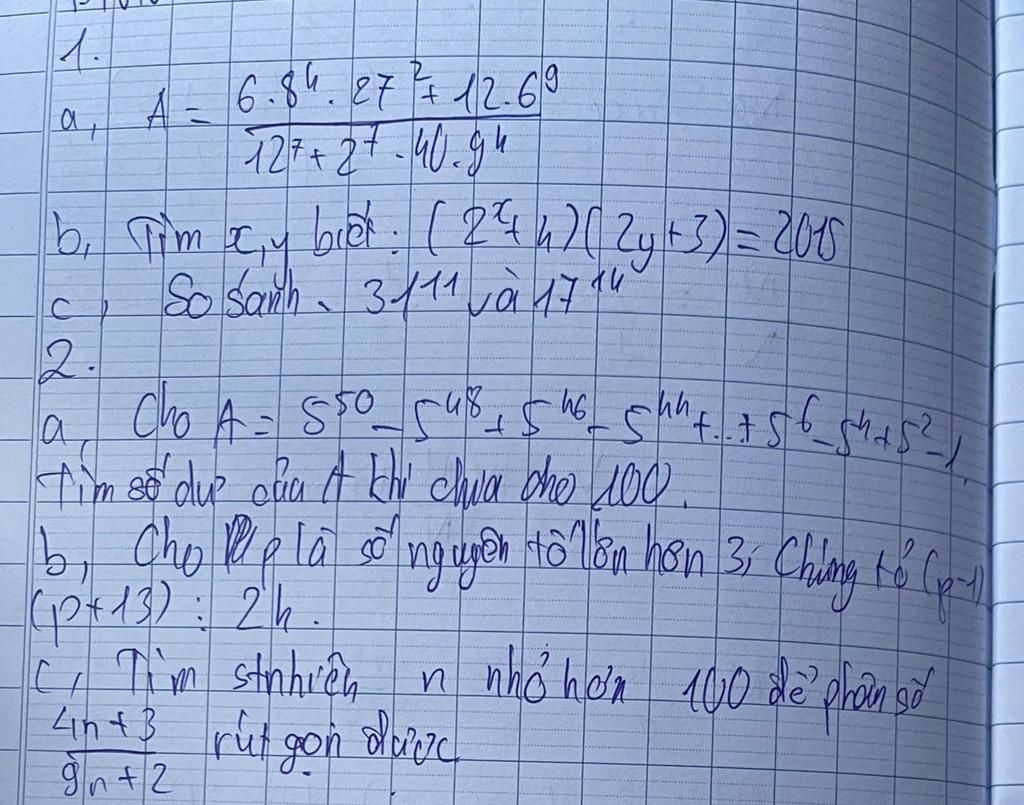 1.
a, A = \frac{6.8^4.27^2+12.6^9}{12^7+2^7.40.9^4}
b, Tìm x,y biết: (2^x+4)(2y+3)=2015
c, So sánh 31^{11} và 17^{14}
2.
a, Cho A= 5^{50}-5^{48}+5^{46}-5^{44}+...+5^6-5^4+5^2-1
Tìm số dư của A khi chia cho 100.
b, Cho p là số nguyên tố lớn hơn 3; Chứng tỏ (p-1)
(p+13) ⋮ 24.
c, Tìm stnhiên n nhỏ hơn 100 để phân số
\frac{4n+3}{9n+2} rút gọn được